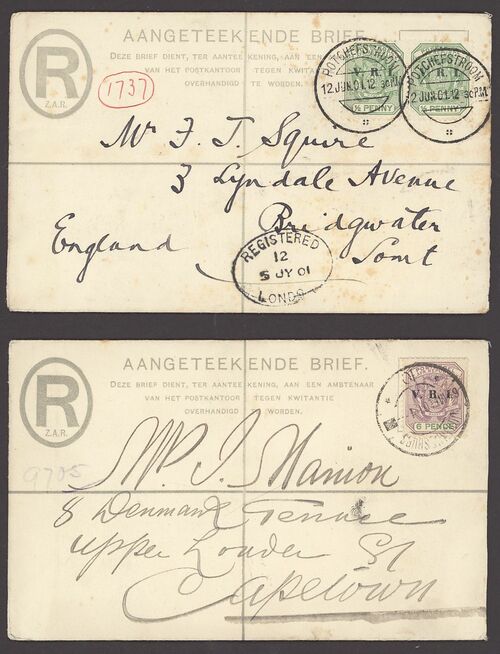 AANGETEEKENDE BRIEF.
R
Z.A.R.
DEZE BRIEF DIENT, TER AANTEEKENING,
VAN HET POSTKANTOOR TEGEN KWITANTIE
OVERHANDIGD TE WORDEN.
1737
POTCHEFSTROOM
12 JUN.01.12 30PM
POTCHEFSTROOM
12 JUN.01.12 30PM
V. R. I.
V. R. I.
½ PENNY
½ PENNY
Mr F. J. Squire
3 Lyndale Avenue
Bridgwater
England Somt
REGISTERED
12
5 JY 01
LONDO
AANGETEEKENDE BRIEF.
R
Z.A.R.
DEZE BRIEF DIENT, TER AANTEEKENING, AAN EEN AMBTENAAR
VAN HET POSTKANTOOR TEGEN KWITANTIE
OVERHANDIGD TE WORDEN.
V. R. I.
6 PENCE
9705
Mr. J. Manion
8 Denmark Terrace
upper Louder St
Capetown